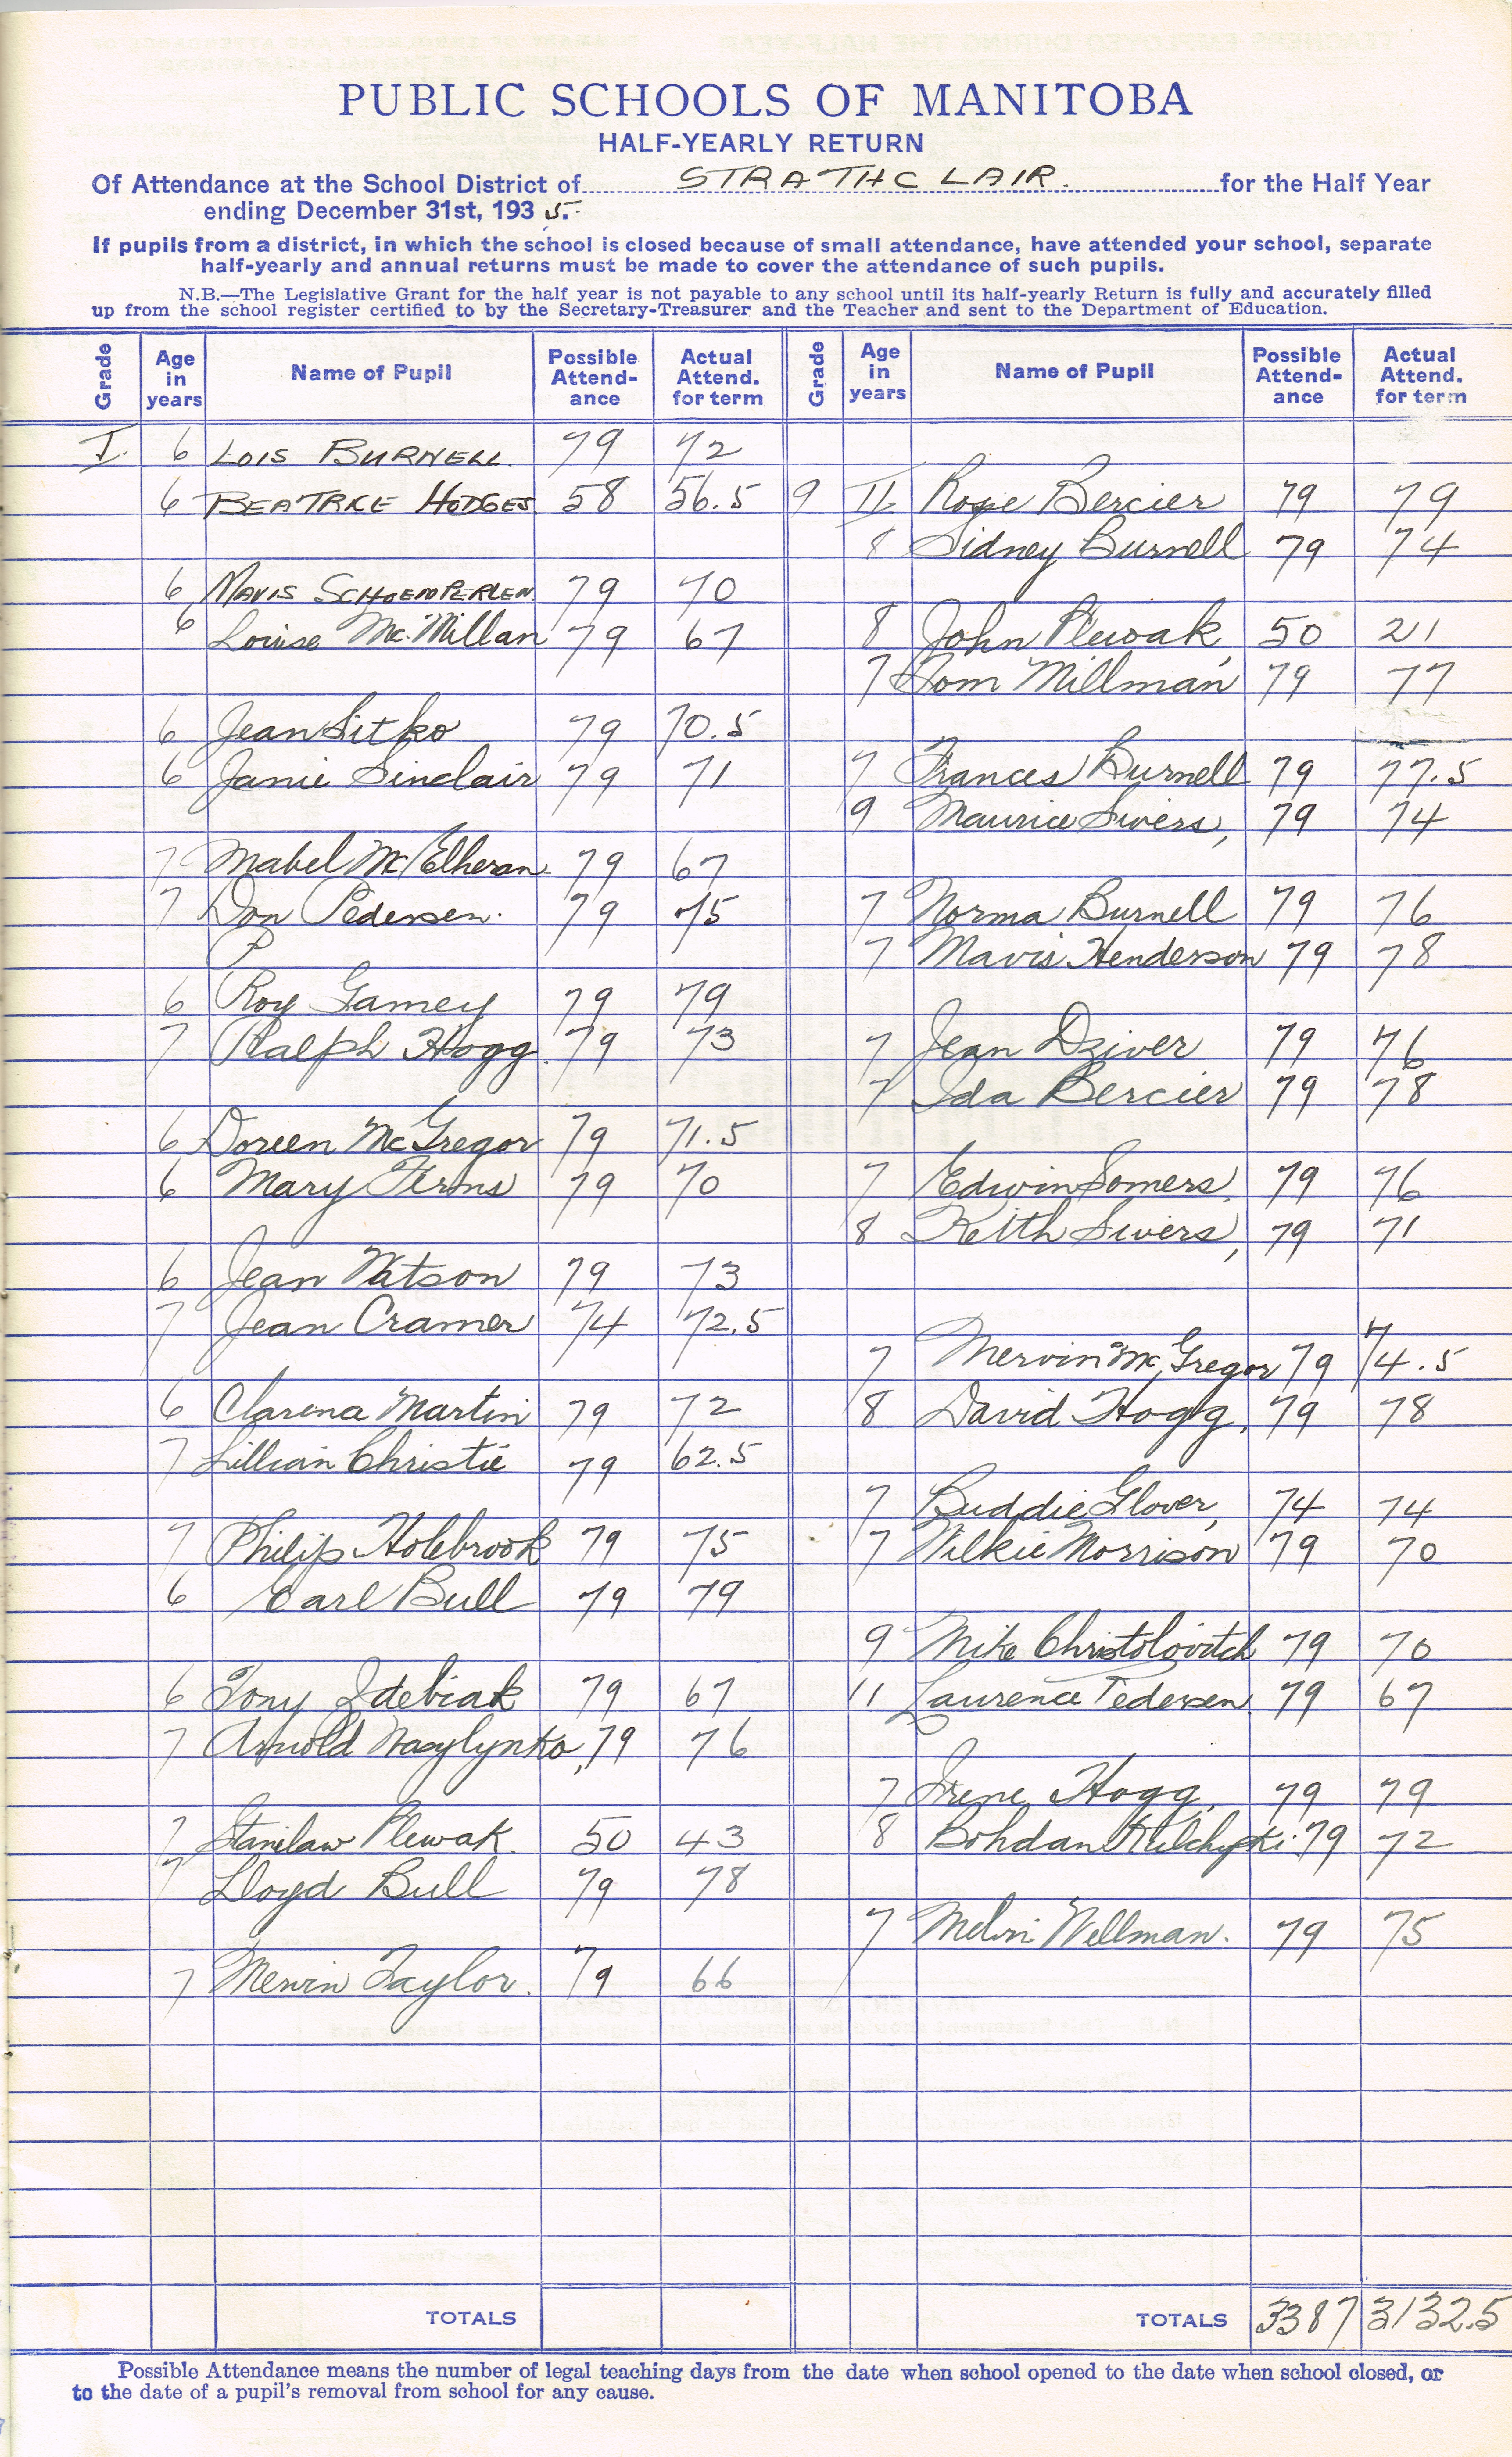 PUBLIC SCHOOLS OF MANITOBA
HALF-YEARLY RETURN
Of Attendance at the School District of STRATHCLAIR. for the Half Year
ending December 31st, 1935.
If pupils from a district, in which the school is closed because of small attendance, have attended your school, separate
half-yearly and annual returns must be made to cover the attendance of such pupils.
N.B.—The Legislative Grant for the half year is not payable to any school until its half-yearly Return is fully and accurately filled
up from the school register certified to by the Secretary-Treasurer and the Teacher and sent to the Department of Education.
Grade Age in years Name of Pupil Possible Attend-ance Actual Attend. for term
I. 6 LOIS BURNELL 79 72
6 BEATRICE HODGES 58 56.5
6 MAVIS SCHOEMPERLEN 79 70
6 Louise McMillan 79 67
6 Jean Sitko 79 70.5
6 Janie Sinclair 79 71
7 Mabel McElheran 79 67
7 Don Pedersen. 79 75
P
6 Roy Gamey 79 79
7 Ralph Hogg. 79 73
6 Doreen McGregor 79 71.5
6 Mary Ferms 79 70
6 Jean Watson 79 73
7 Jean Cramer 74 72.5
6 Clarena Martin 79 72
7 Lillian Christie 79 62.5
7 Philip Holebrook 79 75
6 Earl Bull 79 79
6 Tony Zdebiak 79 67
7 Arnold Wasylynko, 79 76
7 Stanilaw Plewak. 50 43
7 Lloyd Bull 79 78
7 Mervin Taylor. 79 66
TOTALS
Grade Age in years Name of Pupil Possible Attend-ance Actual Attend. for term
9 II Rosie Bercier 79 79
8 Sidney Burnell 79 74
8 John Plewak, 50 21
7 Tom Millman 79 77
7 Frances Burnell 79 77.5
9 Maurice Sivers, 79 74
7 Norma Burnell 79 76
7 Mavis Henderson 79 78
7 Jean Dziver 79 76
7 Ida Bercier 79 78
7 Edwin Somers, 79 76
8 Keith Sivers, 79 71
7 Mervin McGregor 79 74.5
8 David Hogg, 79 78
7 Buddie Glover, 74 74
7 Wilkie Morrison 79 70
9 Mike Christolovitch 79 70
11 Laurence Pedersen 79 67
7 Irene Hogg, 79 79
8 Bohdan Kulchyski. 79 72
7 Melvin Wellman. 79 75
TOTALS 3387 3132.5
Possible Attendance means the number of legal teaching days from the date when school opened to the date when school closed, or
to the date of a pupil's removal from school for any cause.